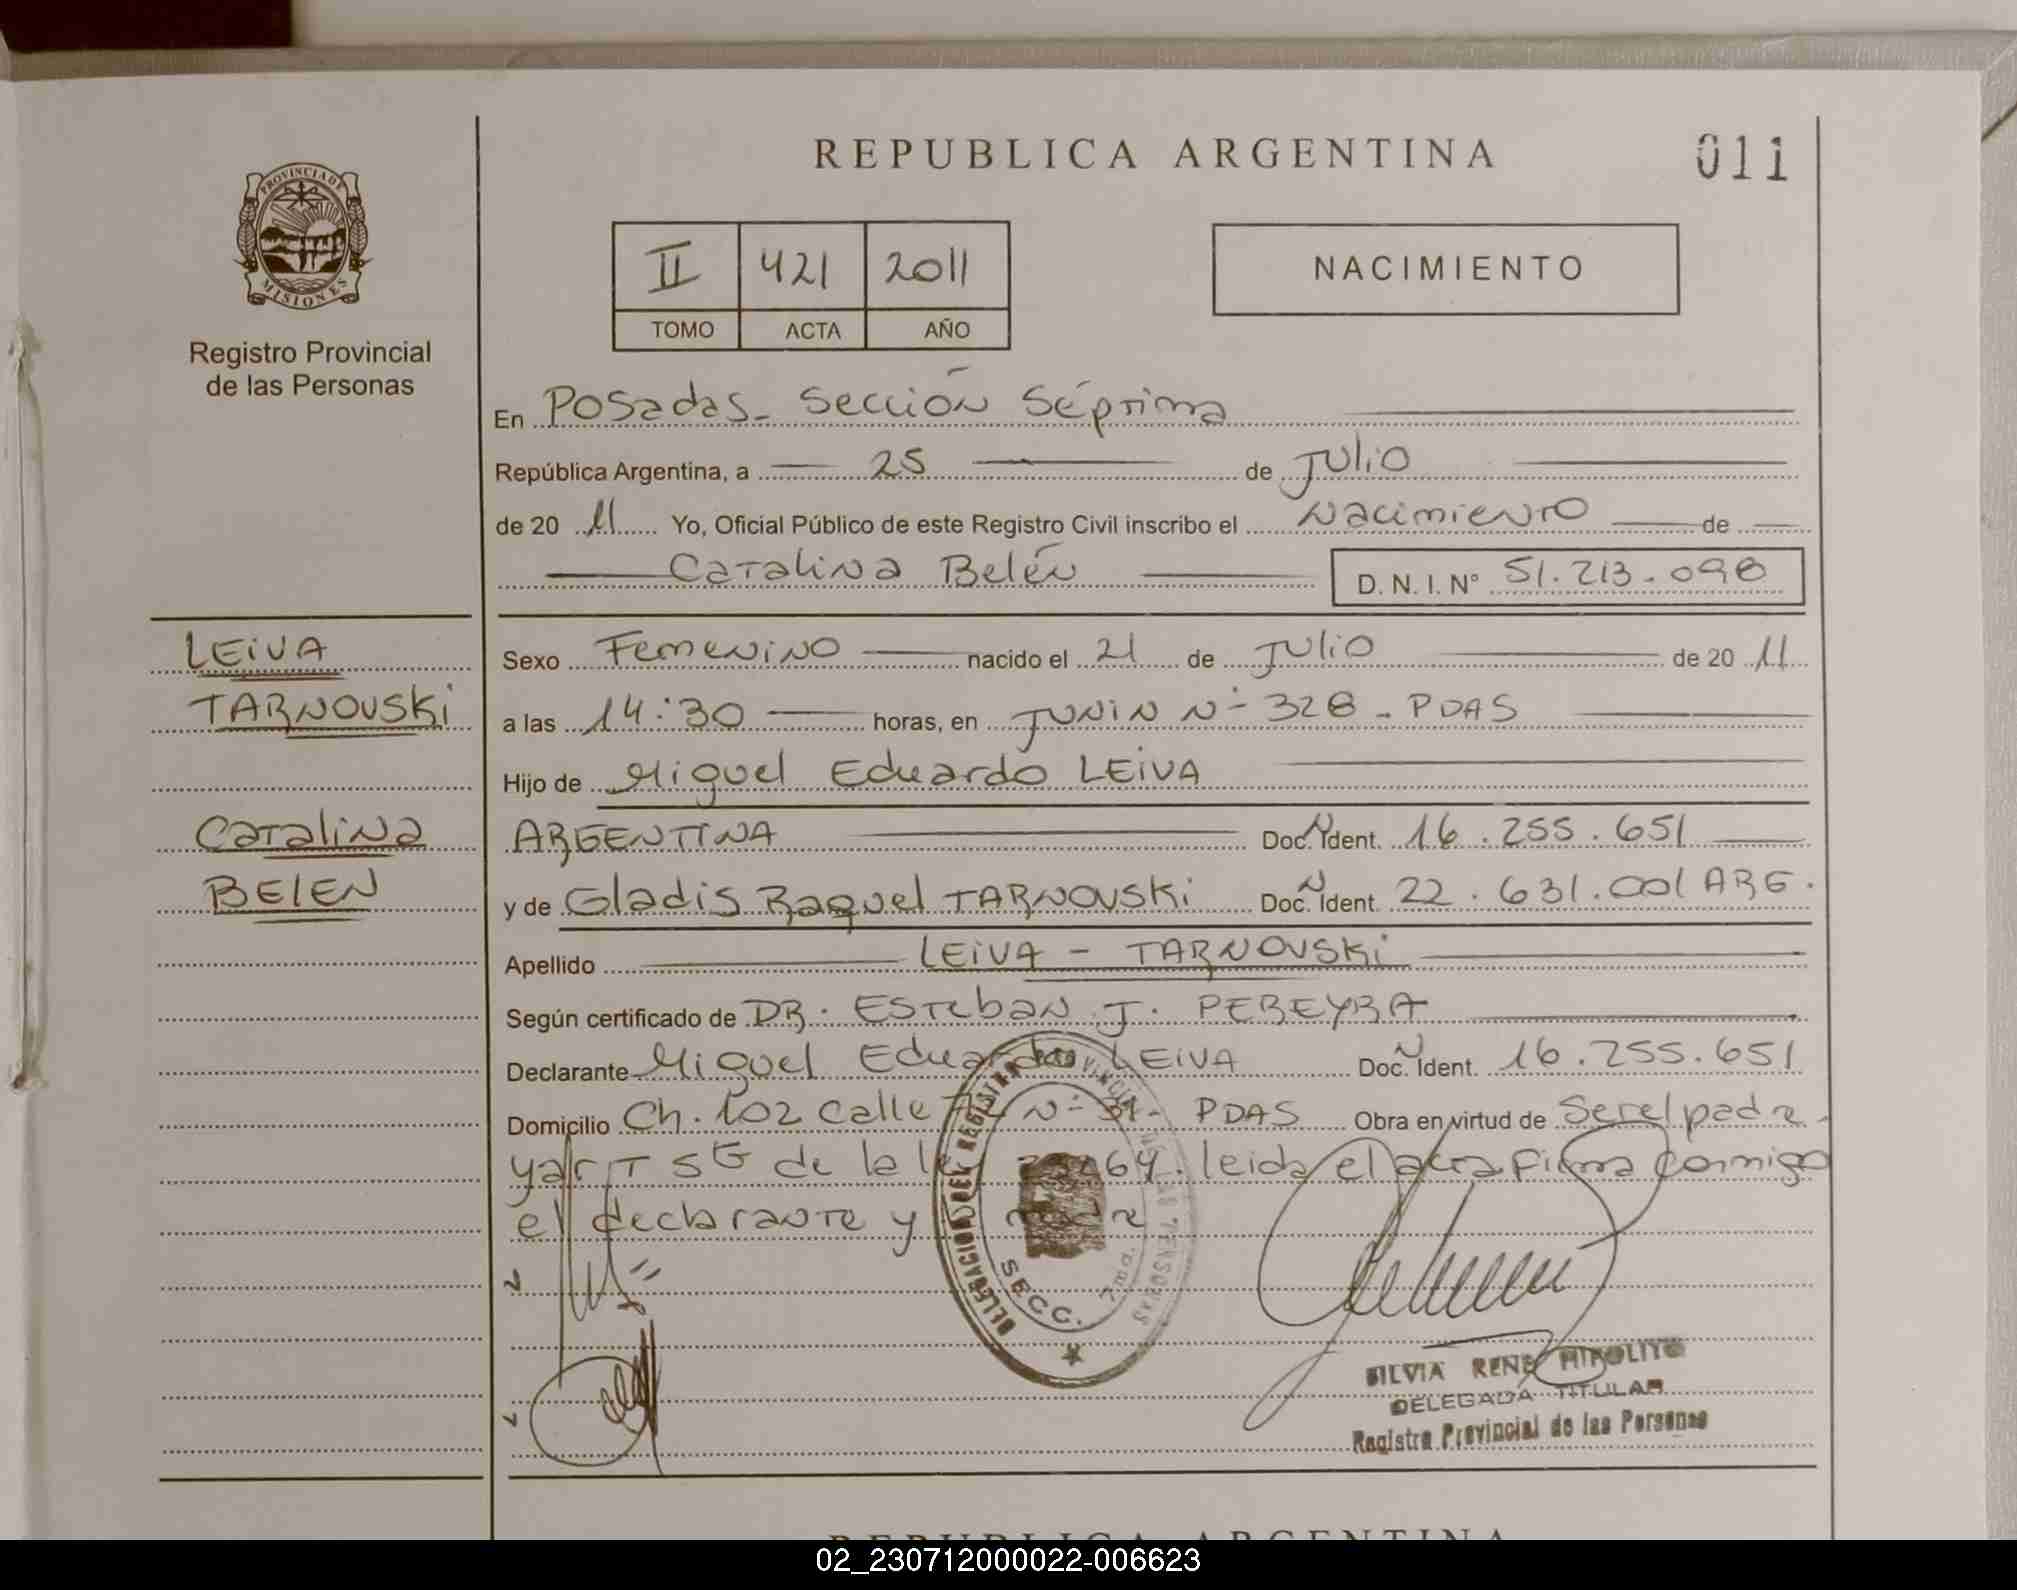 REPUBLICA ARGENTINA
011
PROVINCIA DE
MISIONES
Registro Provincial
de las Personas
II 421 2011
TOMO ACTA AÑO
NACIMIENTO
En Posadas - Sección Séptima
República Argentina, a 25 de Julio
de 20 11 Yo, Oficial Público de este Registro Civil inscribo el Nacimiento de
Catalina Belén D. N. I. N° 51.213.098
LEIVA
TARNOVSKI
Catalina
BELEN
Sexo Femenino nacido el 21 de Julio de 20 11
a las 14:30 horas, en JUNIN N° 328 - PDAS
Hijo de Miguel Eduardo LEIVA
ARGENTINA Doc. N Ident. 16.255.651
y de Gladis Raquel TARNOVSKI Doc. N Ident. 22.631.001 ARG.
Apellido LEIVA - TARNOVSKI
Según certificado de DR. Esteban J. PEREYRA
Declarante Miguel Eduardo LEIVA Doc. N Ident. 16.255.651
Domicilio Ch. 102 Calle N° PDAS Obra en virtud de Ser el padre
y art 5to de la leida el acta firma conmigo
el declarante y madre
DELEGACION DEL REGISTRO PROVINCIAL DE LAS PERSONAS
SECC. 7ma.
SILVIA RENE HIPOLITO
DELEGADA TITULAR
Registro Provincial de las Personas
REPUBLICA ARGENTINA
02_230712000022-006623